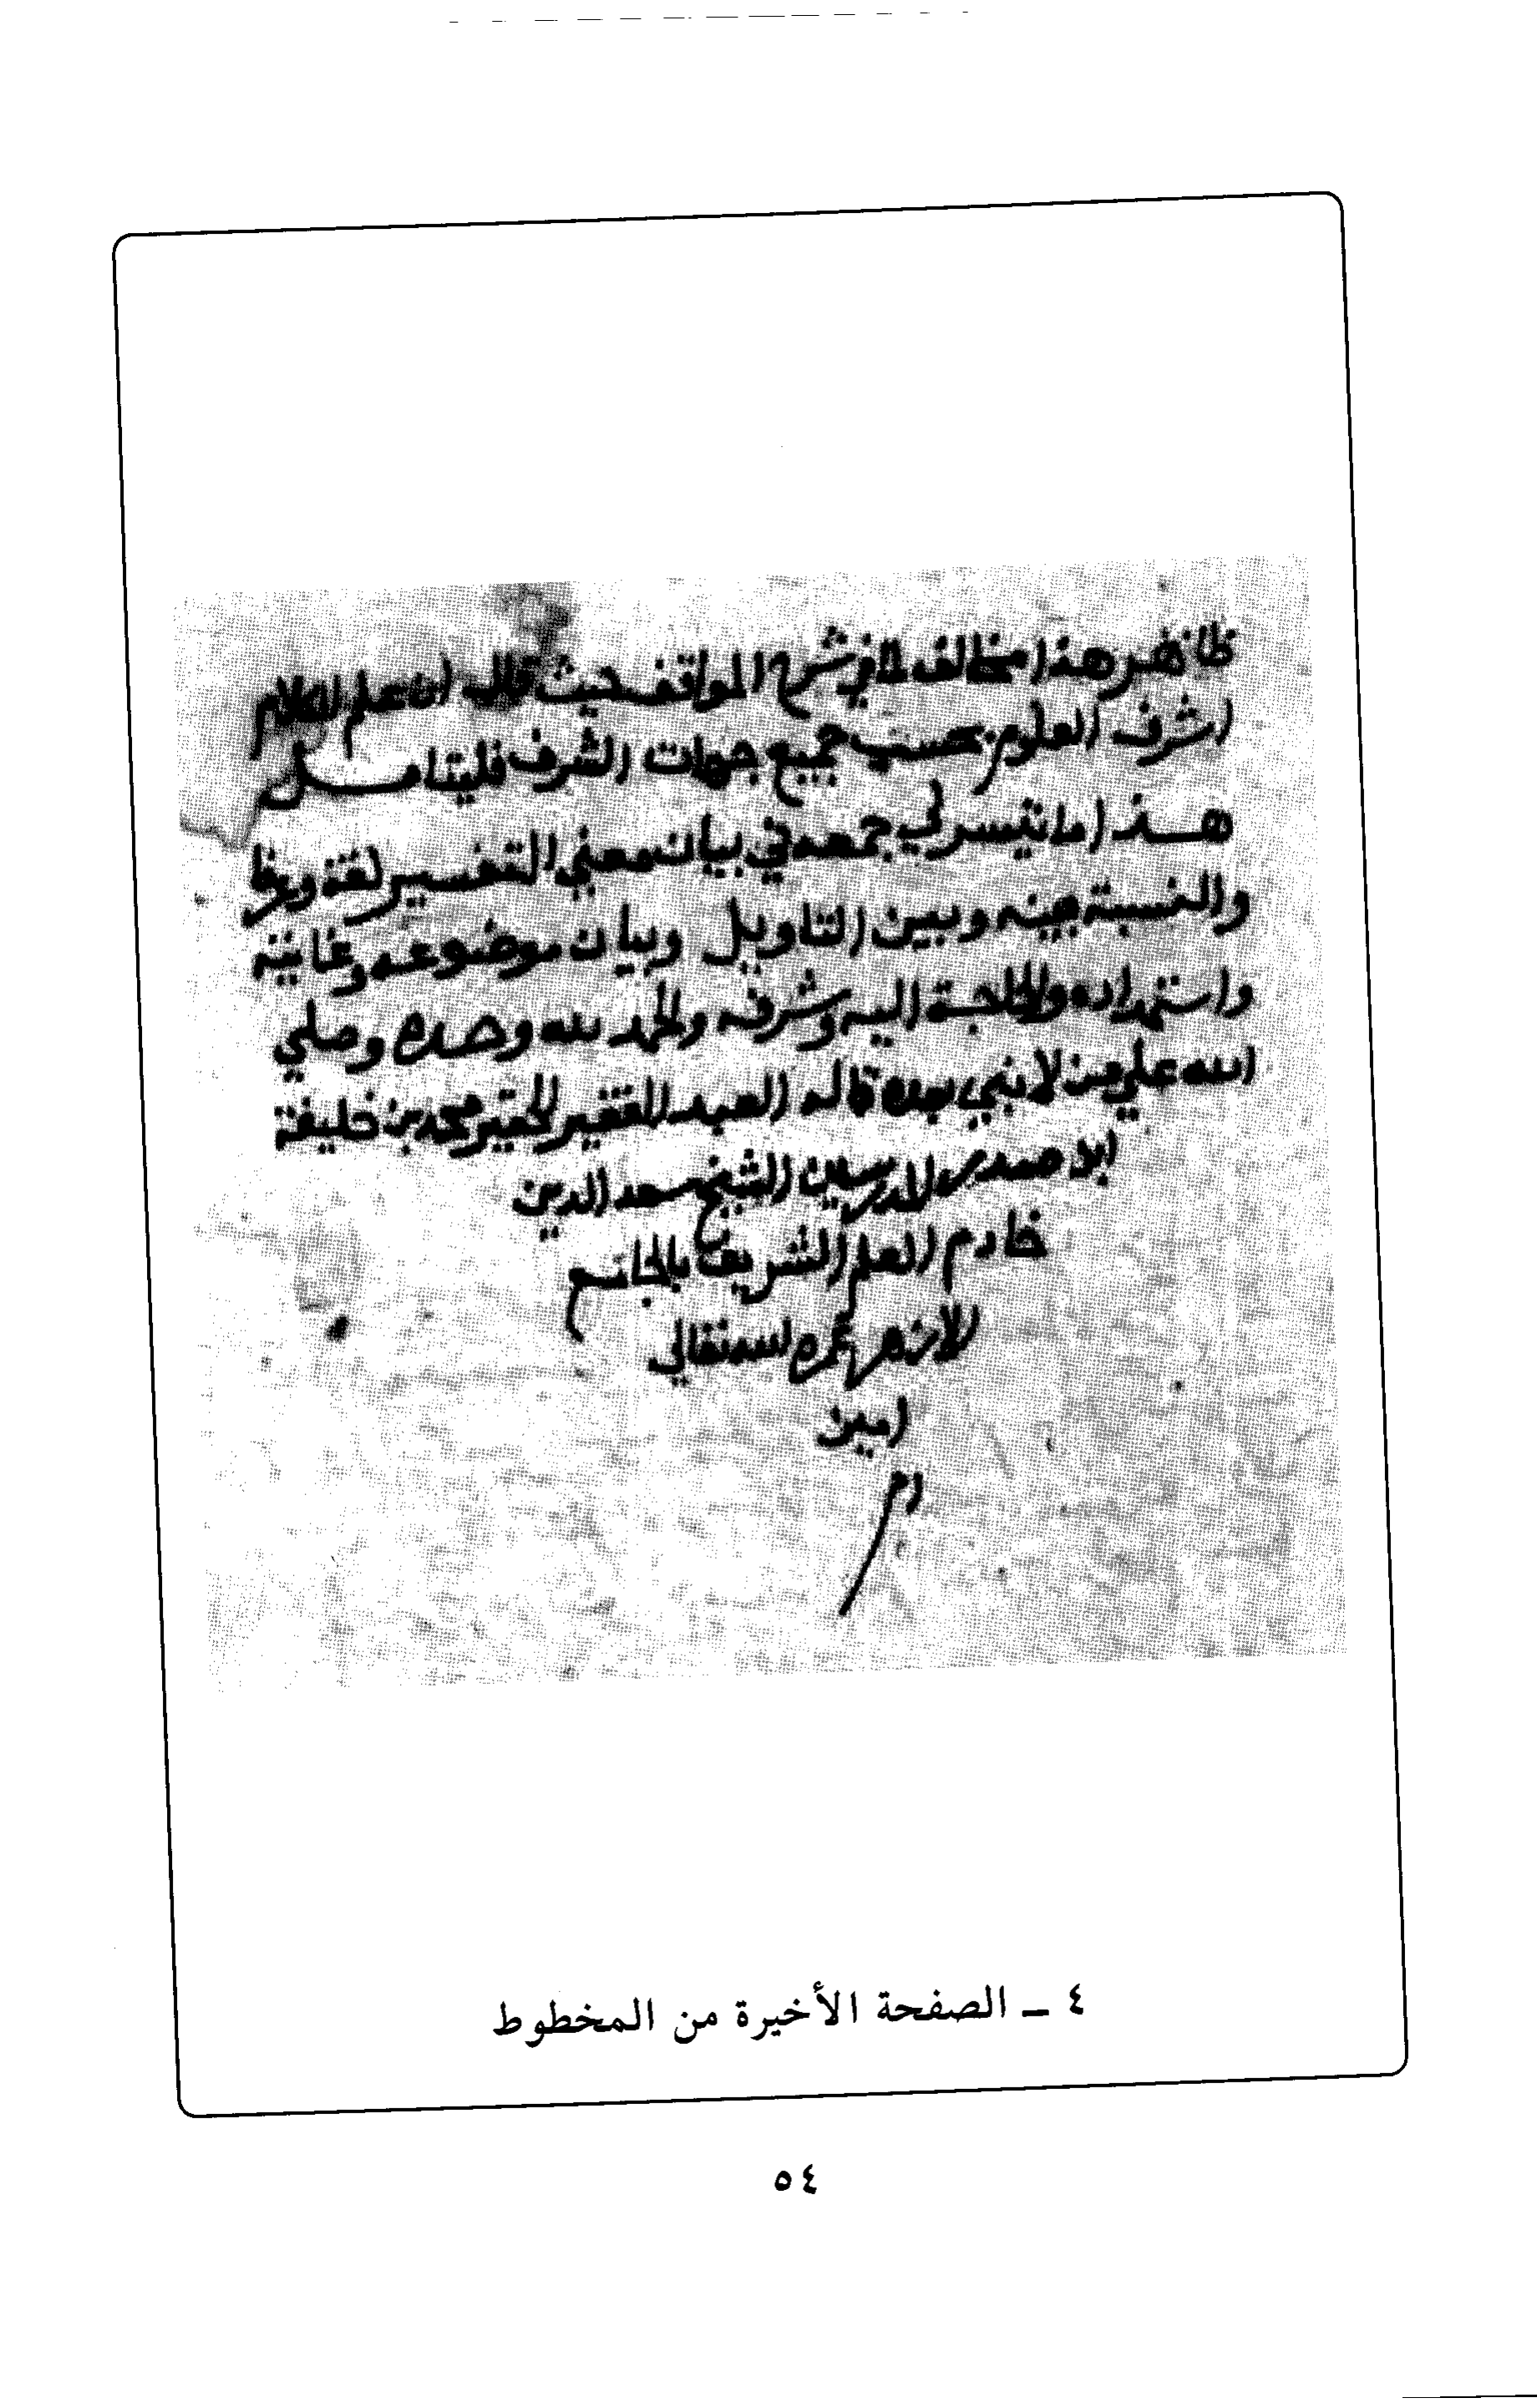 ظاهر هذا مخالف لما في شرح المواقف حيث قال ان علم الكلام
اشرف العلوم بحسب جميع جهات الشرف فليتامل
هذا ما تيسر لي جمعه في بيان معني التفسير لغة وعرفا
والنسبة بينه وبين التاويل وبيان موضوعه وغايته
واستمداده والحاجة اليه وشرفه والحمد لله وحده وصلي
الله علي من لا نبي بعده قاله العبد الفقير الحقير محمد بن خليفة
ابن الشيخ سعد الدين
خادم العلم الشريف بالجامع
الازهر عمره الله تعالي
امين
٤ ــ الصفحة الأخيرة من المخطوط
٥٤